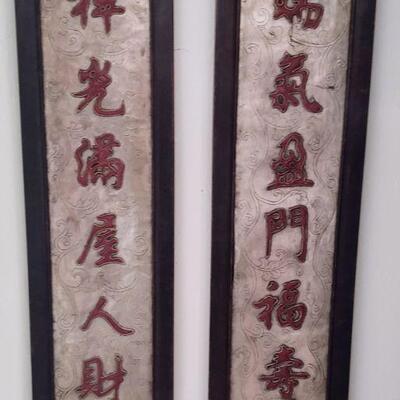 瑞氣盈門福壽
祥光滿屋人財